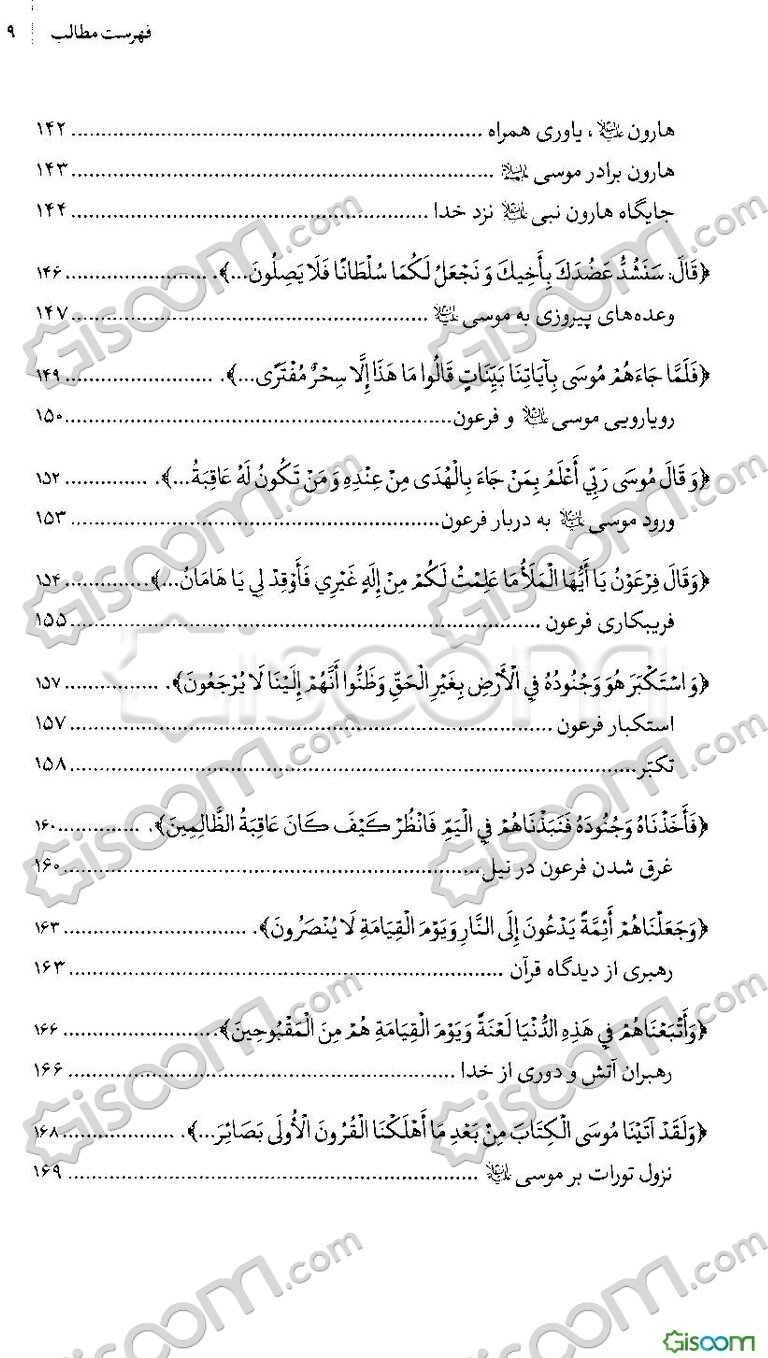 فهرست مطالب ۹
هارون علیه‌السلام، یاوری همراه ........ ۱۴۲
هارون برادر موسی علیهماالسلام ........ ۱۴۳
جایگاه هارون نبی علیه‌السلام نزد خدا ........ ۱۴۴
﴿قَالَ: سَنَشُدُّ عَضُدَكَ بِأَخِيكَ وَ نَجْعَلُ لَكُمَا سُلْطَانًا فَلَا يَصِلُونَ...﴾. ........ ۱۴۶
وعده‌های پیروزی به موسی علیه‌السلام ........ ۱۴۷
﴿فَلَمَّا جَاءَهُمْ مُوسَى بِآيَاتِنَا بَيِّنَاتٍ قَالُوا مَا هَذَا إِلَّا سِحْرٌ مُفْتَرًى...﴾. ........ ۱۴۹
رویارویی موسی علیه‌السلام و فرعون ........ ۱۵۰
﴿وَ قَالَ مُوسَى رَبِّي أَعْلَمُ بِمَنْ جَاءَ بِالْهُدَى مِنْ عِنْدِهِ وَ مَنْ تَكُونُ لَهُ عَاقِبَةُ...﴾. ........ ۱۵۲
ورود موسی علیه‌السلام به دربار فرعون ........ ۱۵۳
﴿وَقَالَ فِرْعَوْنُ يَا أَيُّهَا الْمَلَأُ مَا عَلِمْتُ لَكُمْ مِنْ إِلَهٍ غَيْرِي فَأَوْقِدْ لِي يَا هَامَانُ...﴾. ........ ۱۵۴
فریبکاری فرعون ........ ۱۵۵
﴿وَ اسْتَكْبَرَ هُوَ وَجُنُودُهُ فِي الْأَرْضِ بِغَيْرِ الْحَقِّ وَظَنُّوا أَنَّهُمْ إِلَيْنَا لَا يُرْجَعُونَ﴾. ........ ۱۵۷
استکبار فرعون ........ ۱۵۷
تکبّر ........ ۱۵۸
﴿فَأَخَذْنَاهُ وَجُنُودَهُ فَنَبَذْنَاهُمْ فِي الْيَمِّ فَانْظُرْ كَيْفَ كَانَ عَاقِبَةُ الظَّالِمِينَ﴾. ........ ۱۶۰
غرق شدن فرعون در نیل ........ ۱۶۰
﴿وَجَعَلْنَاهُمْ أَئِمَّةً يَدْعُونَ إِلَى النَّارِ وَيَوْمَ الْقِيَامَةِ لَا يُنْصَرُونَ﴾. ........ ۱۶۳
رهبری از دیدگاه قرآن ........ ۱۶۳
﴿وَأَتْبَعْنَاهُمْ فِي هَذِهِ الدُّنْيَا لَعْنَةً وَيَوْمَ الْقِيَامَةِ هُمْ مِنَ الْمَقْبُوحِينَ﴾. ........ ۱۶۶
رهبران آتش و دوری از خدا ........ ۱۶۶
﴿وَلَقَدْ آتَيْنَا مُوسَى الْكِتَابَ مِنْ بَعْدِ مَا أَهْلَكْنَا الْقُرُونَ الْأُولَى بَصَائِرَ...﴾. ........ ۱۶۸
نزول تورات بر موسی علیه‌السلام ........ ۱۶۹
Gisoom.com
Gisoom
GISOOM